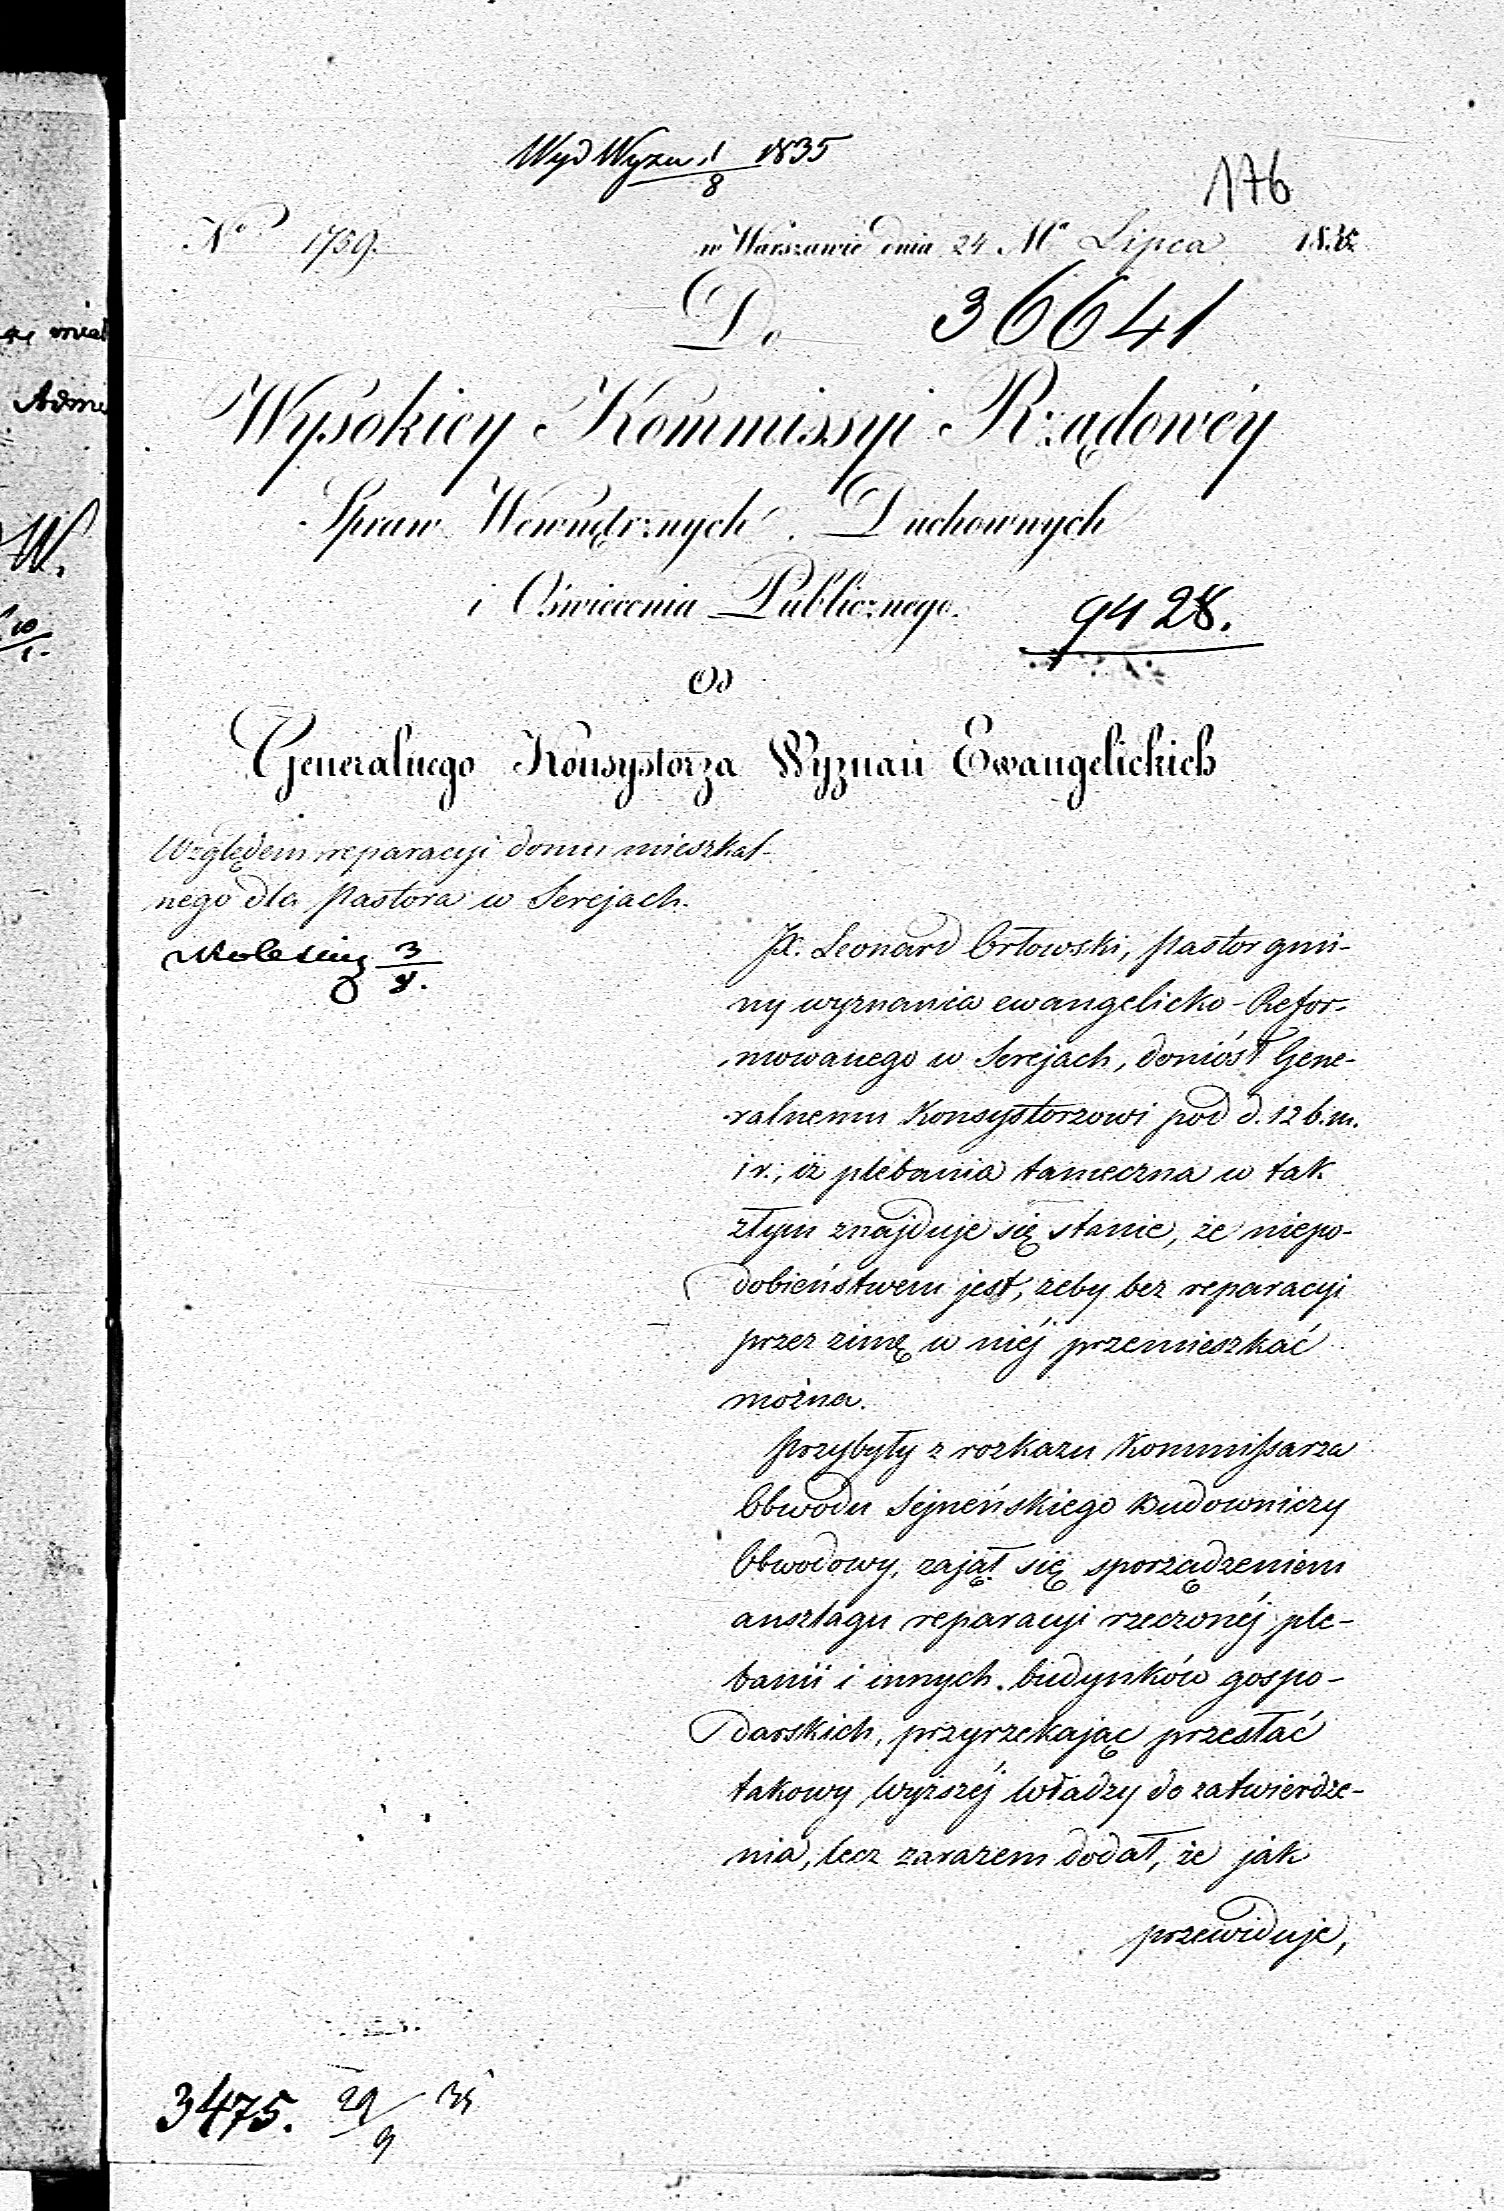 Wyd Wyzn 1/8 1835
176
No 1759. w Warszawie dnia 24 Ma Lipca 1835
Do 36641
Wysokiey Kommissyi Rządowéy
Spraw Wewnętrznych, Duchownych
i Oświecenia Publicznego. 9428.
Od
Generalnego Konsystorza Wyznań Ewangelickich
Względem reparacyi domu mieszkal-
nego dla pastora w Serejach.
3/8.
JX. Leonard Orłowski, pastor gmi-
ny wyznania ewangelicko-Refor-
mowanego w Serejach, doniósł Gene-
ralnemu Konsystorzowi pod d. 12 b.m.
i r., iż plebania tameczna w tak
złym znajduje się stanie, że niepo-
dobieństwem jest, żeby bez reparacyi
przez zimę w niéj przemieszkać
można.
Przybyły z rozkazu Kommissarza
Obwodu Sejneńskiego Budowniczy
Obwodowy, zajął się sporządzeniem
anszlagu reparacyi rzeczonéj ple-
banii i innych budynków gospo-
darskich, przyrzekając przesłać
takowy Wyższéj Władzy do zatwierdze-
nia, lecz zarazem dodał, że jak
przewiduje,
3475. 29/9 35